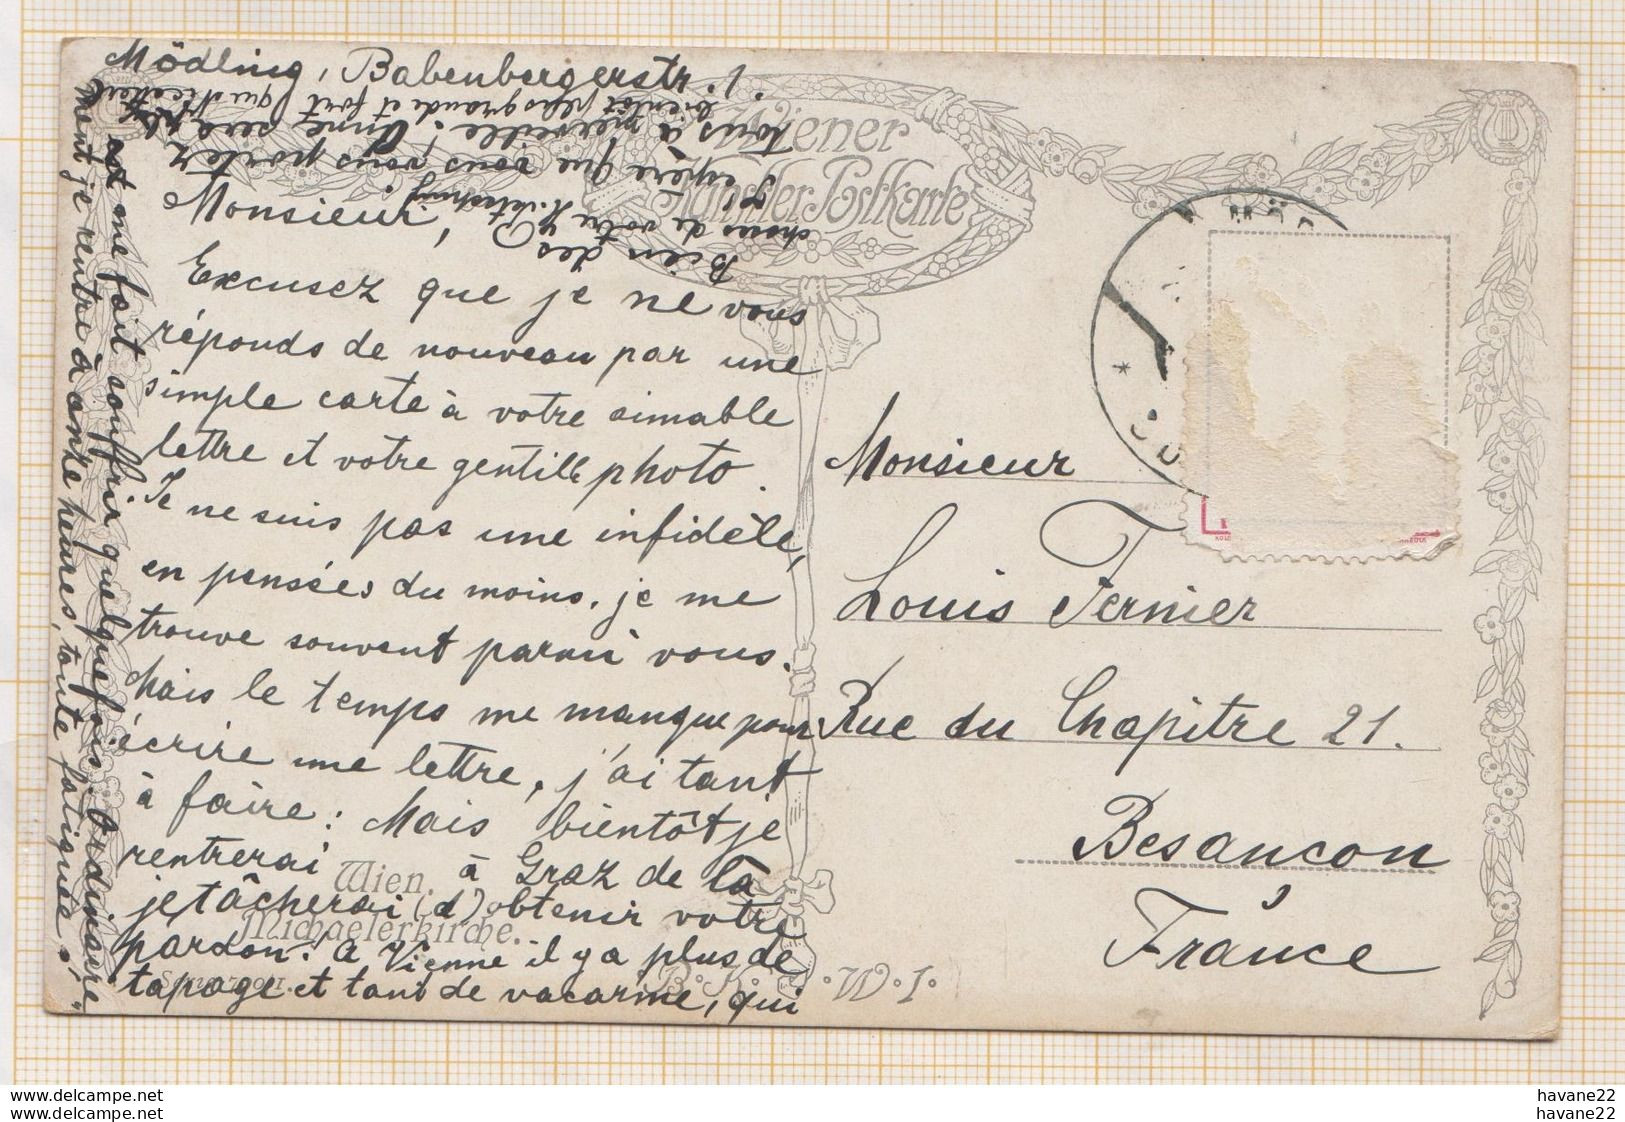 Mödling, Babenbergerstr. 1.
Monsieur,
Excusez que je ne vous
réponds de nouveau par une
simple carte à votre aimable
lettre et votre gentille photo.
Je ne suis pas une infidèle,
en pensées du moins, je me
trouve souvent parmi vous.
Mais le temps me manque pour
écrire une lettre, j'ai tant
à faire: Mais bientôt je
rentrerai à Graz de là
je tâcherai (d') obtenir votre
pardon! A Vienne il y a plus de
tapage et tant de vacarme, qui
me fait souffrir quelquefois. Ordinaire
ment je rentre à onze heures, toute fatiguée.
J'espère que vous vous portez
tous à merveille. Anne sera
bientôt plus grande et fort
Bien des
choses de votre
Wiener
Künstler Postkarte
Monsieur
Louis Fernier
Rue du Chapitre 21.
Besançon
France
Wien.
Michaelerkirche.
B.K.W.I.
havane22
havane22
havane22
havane22